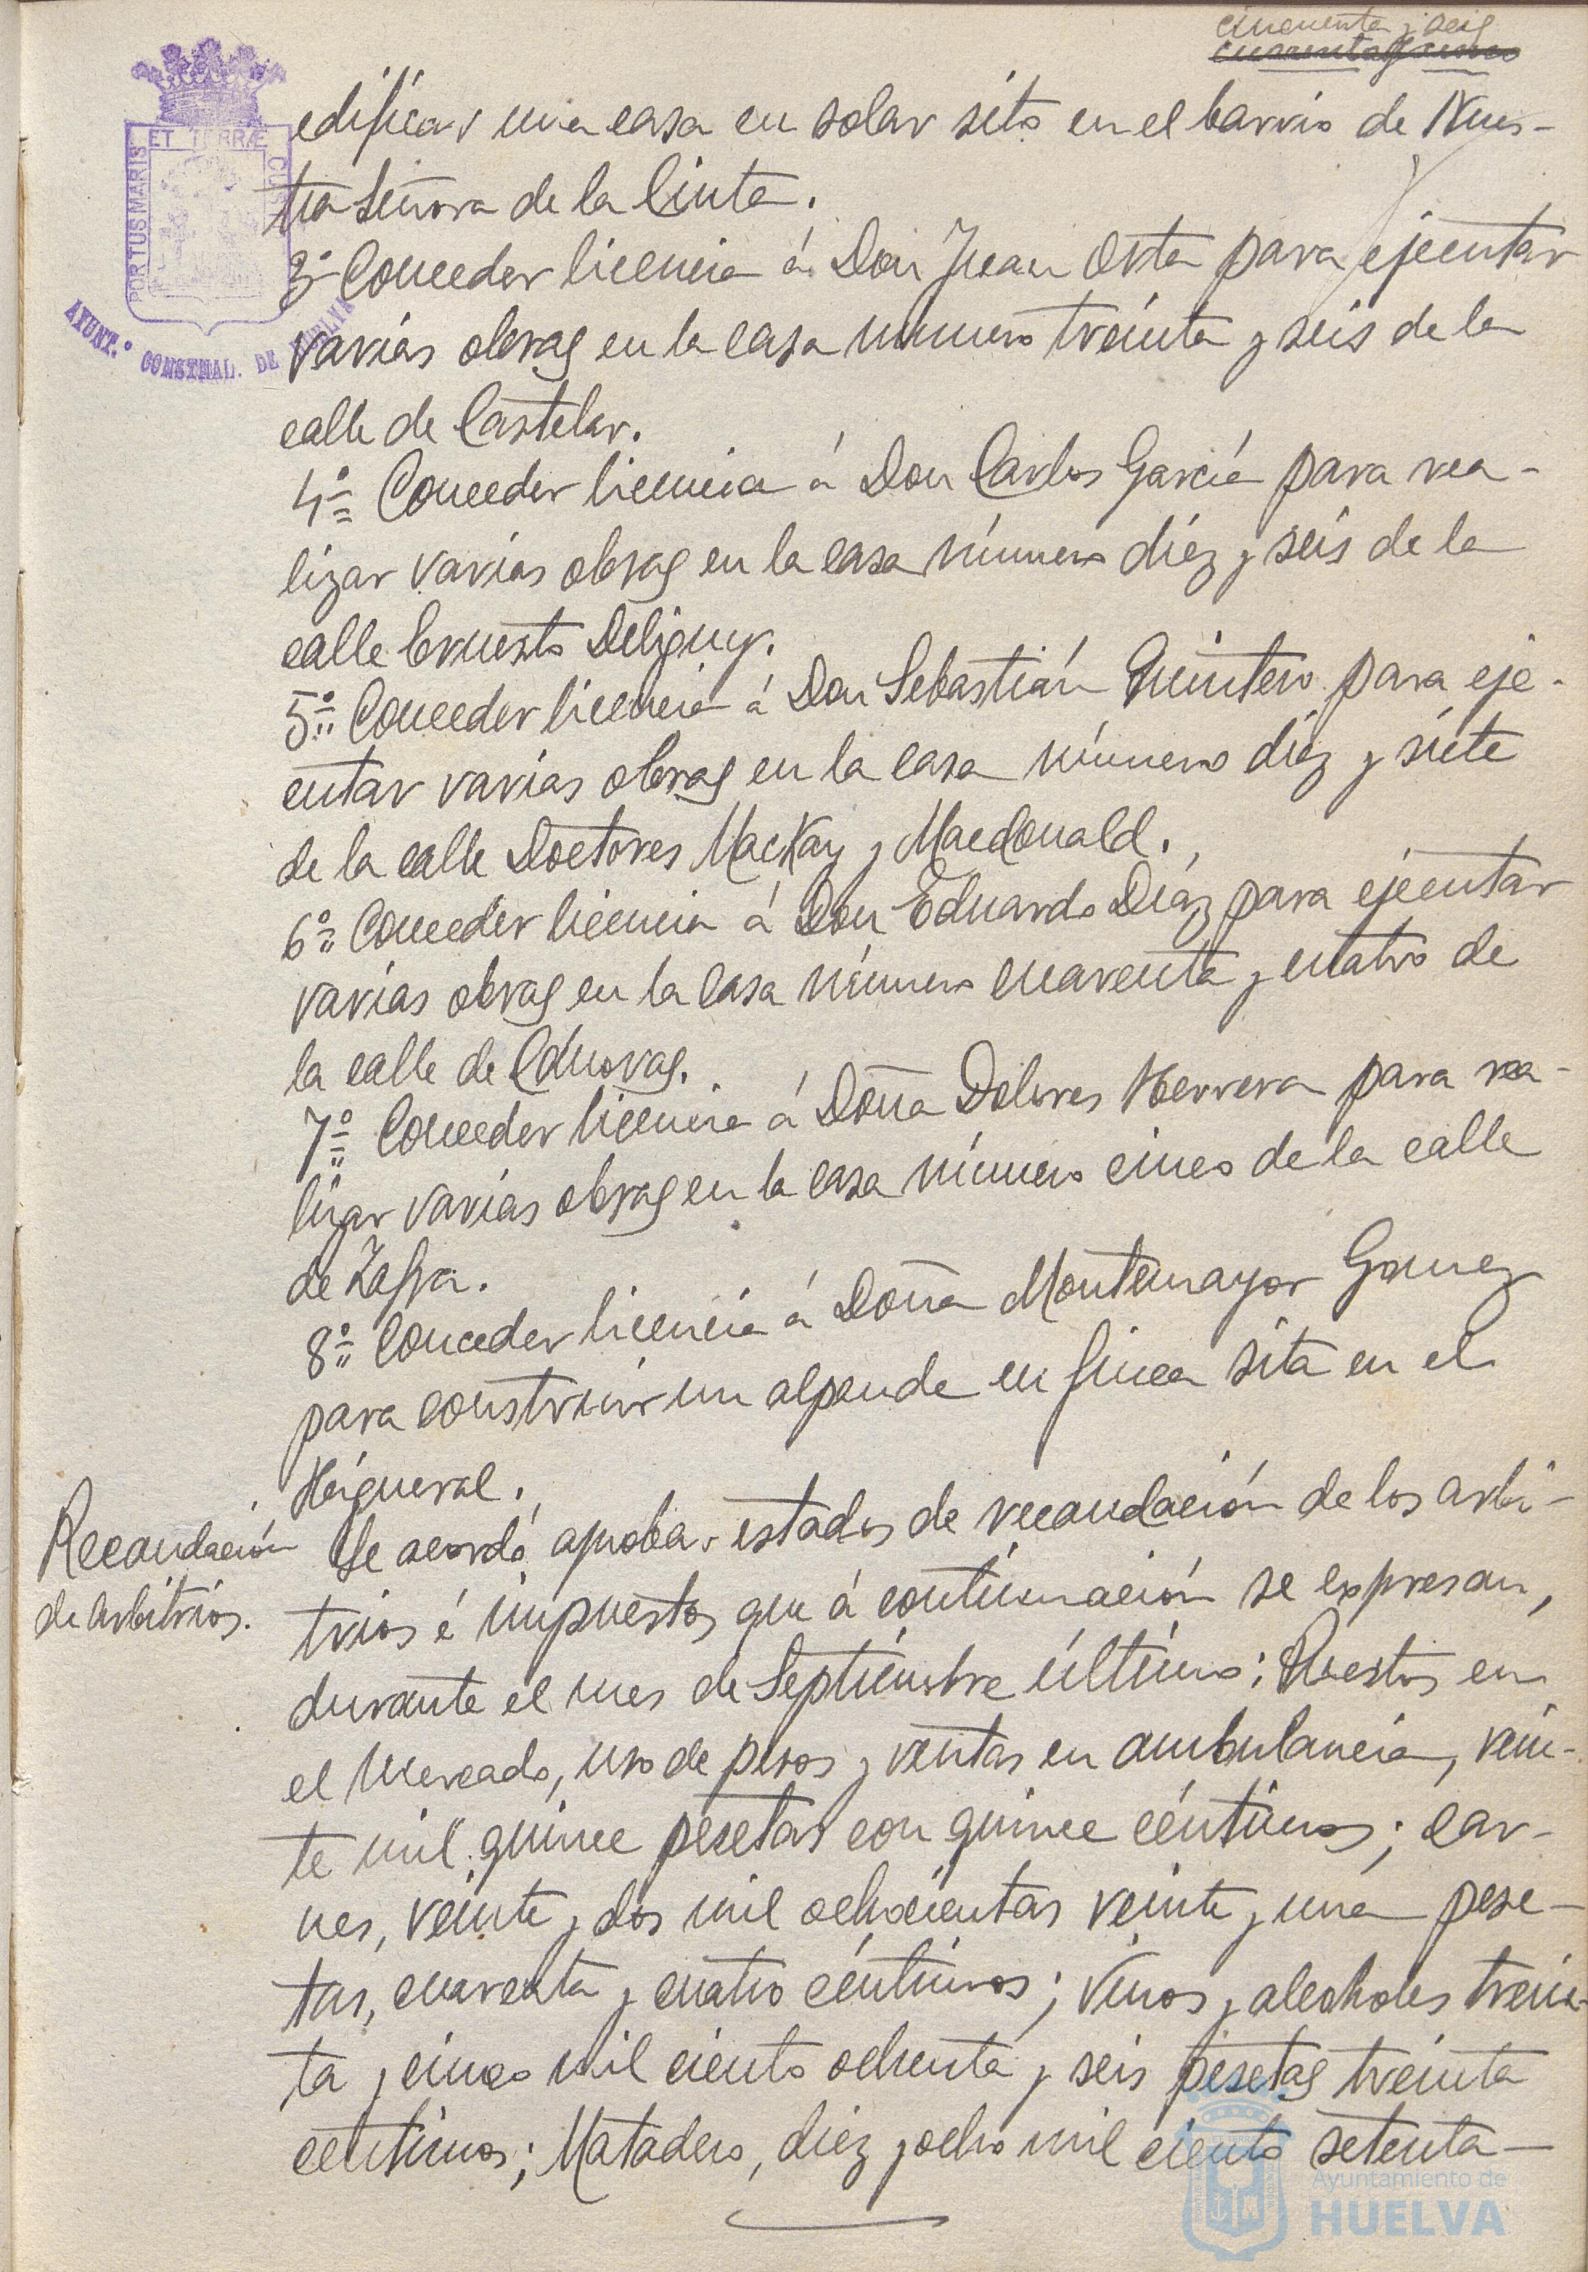 cincuenta y seis
cuarenta y cinco
ET TERRÆ
PORTUS MARIS
AYUNT.º CONSTNAL. DE HUELVA
edificar una casa en solar sito en el barrio de Nues-
tra Señora de la Cinta.
3º Conceder licencia á Don Juan Orta para ejecutar
varias obras en la casa número treinta y seis de la
calle de Castelar.
4º Conceder licencia á Don Carlos García para rea-
lizar varias obras en la casa número diez y seis de la
calle Ernesto Deligny.
5º Conceder licencia á Don Sebastián Quintero para eje-
cutar varias obras en la casa número diez y siete
de la calle Doctores MacKay y Macdonald.
6º Conceder licencia á Don Eduardo Díaz para ejecutar
varias obras en la casa número cuarenta y cuatro de
la calle de Cánovas.
7º Conceder licencia á Doña Dolores Herrera para rea-
lizar varias obras en la casa número cinco de la calle
de Zafra.
8º Conceder licencia á Doña Montemayor Gomez
para construir un alpende en finca sita en el
Higueral.
Recaudación
de arbitrios.
Se acordó aprobar estados de recaudación de los arbi-
trios é impuestos que á continuación se expresan,
durante el mes de Septiembre último: Puestos en
el Mercado, uso de pesos y ventas en ambulancia, vein-
te mil quince pesetas con quince céntimos; car-
nes, veinte y dos mil ochocientas veinte y una pese-
tas, cuarenta y cuatro céntimos; Vinos y alcoholes trein-
ta y cinco mil ciento ochenta y seis pesetas treinta
céntimos; Matadero, diez y ocho mil ciento setenta
Ayuntamiento de
HUELVA